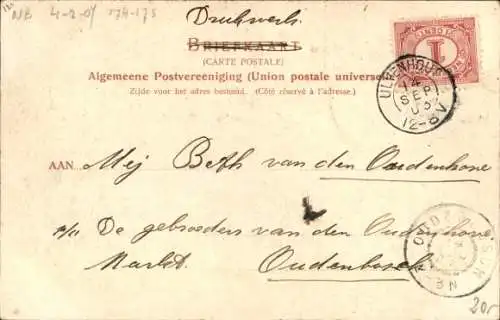 NB 4-2-07 174-175
Drukwerk.
BRIEFKAART
(CARTE POSTALE)
Algemeene Postvereeniging (Union postale universe
Zijde voor het adres bestemd. (Côté réservé à l'adresse.)
ULVENHOUT
14 SEP
12-8V
1
AAN Mej Beth van den Oudenhove
p/a De gebroeders van den Oudenhove
Markt. Oudenbosch
20-